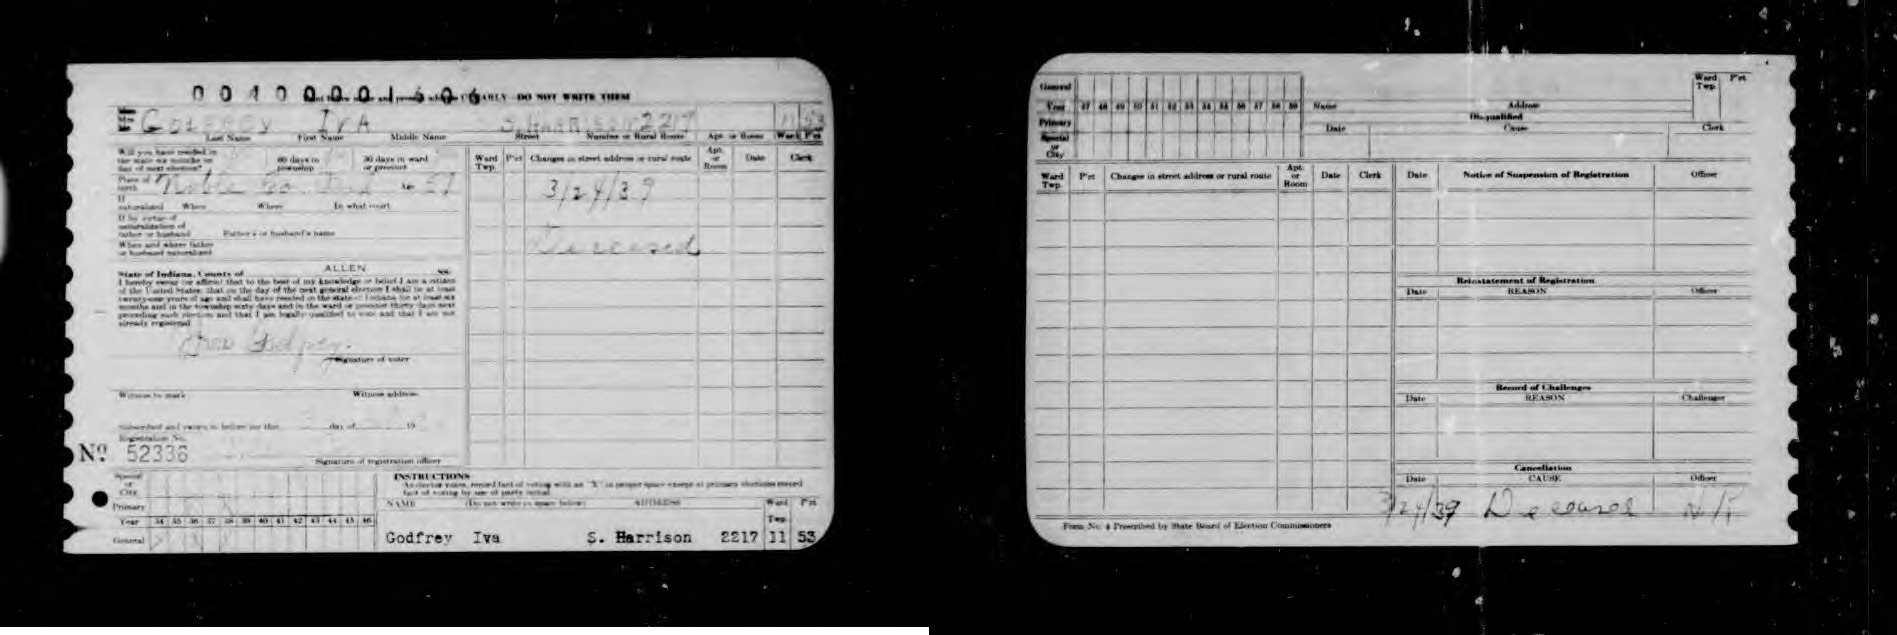 PLAINLY—DO NOT WRITE THEM
Mrs. GODFREY IVA S. HARRISON 2217 11 53
Last Name First Name Middle Name Street Number or Rural Route Apt. or Room Ward P'ct
Will you have resided in
the state six months on 60 days in 30 days in ward
day of next election? township or precinct
Place of birth Noble Co. Ind Age 57
If naturalized When Where In what court
If by virtue of
naturalization of
father or husband Father's or husband's name
When and where father
or husband naturalized
State of Indiana, County of ALLEN ss:
I hereby swear (or affirm) that to the best of my knowledge or belief I am a citizen
of the United States; that on the day of the next general election I shall be at least
twenty-one years of age and shall have resided in the state of Indiana for at least six
months and in the township sixty days and in the ward or precinct thirty days next
preceding such election and that I am legally qualified to vote and that I am not
already registered.
Iva Godfrey
Signature of voter
Witness to mark Witness address
Subscribed and sworn to before me this day of 19
Registration No.
No 52336
Signature of registration officer
Ward Twp. P'ct Changes in street address or rural route Apt. or Room Date Clerk
3/24/39
Deceased
Special or City
Primary
Year 34 35 36 37 38 39 40 41 42 43 44 45 46
General
INSTRUCTIONS
As elector votes, record fact of voting with an "X" in proper space except at primary elections record
fact of voting by use of party initial
NAME (Do not write in space below) ADDRESS Ward Twp. P'ct
Godfrey Iva S. Harrison 2217 11 53
General
Year 47 48 49 50 51 52 53 54 55 56 57 58 59
Primary
Special or City
Name Address Ward Twp. P'ct
Disqualified
Date Cause Clerk
Ward Twp. P'ct Changes in street address or rural route Apt. or Room Date Clerk
Date Notice of Suspension of Registration Officer
Reinstatement of Registration
Date REASON Officer
Record of Challenges
Date REASON Challenger
Cancellation
Date CAUSE Officer
3/24/39 Deceased
Form No. 4 Prescribed by State Board of Election Commissioners